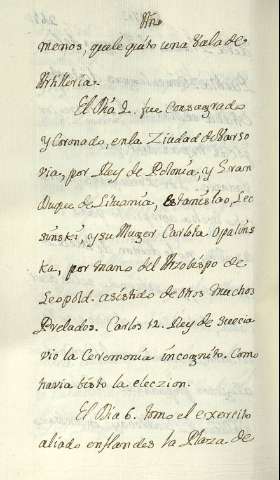 Uno
menos, quele quito una Vala de
Artilleria.
El Dia 2. fue Consagrado
y Coronado, en la Ziudad de Varso
via, por Rey de Polonia, y Gran
Duque de Lituania, Estanislao, Lec
sinski, y su Muger Carlota Opalins
ka, por mano del Arzobispo de
Leopold. asistido de otros muchos
Prelados. Carlos 12. Rey de Suecia
vio la Ceremonia incognito. Como
havia bisto la eleczion.
El Dia 6. tomo el exercito
aliado en flandes la Plaza de